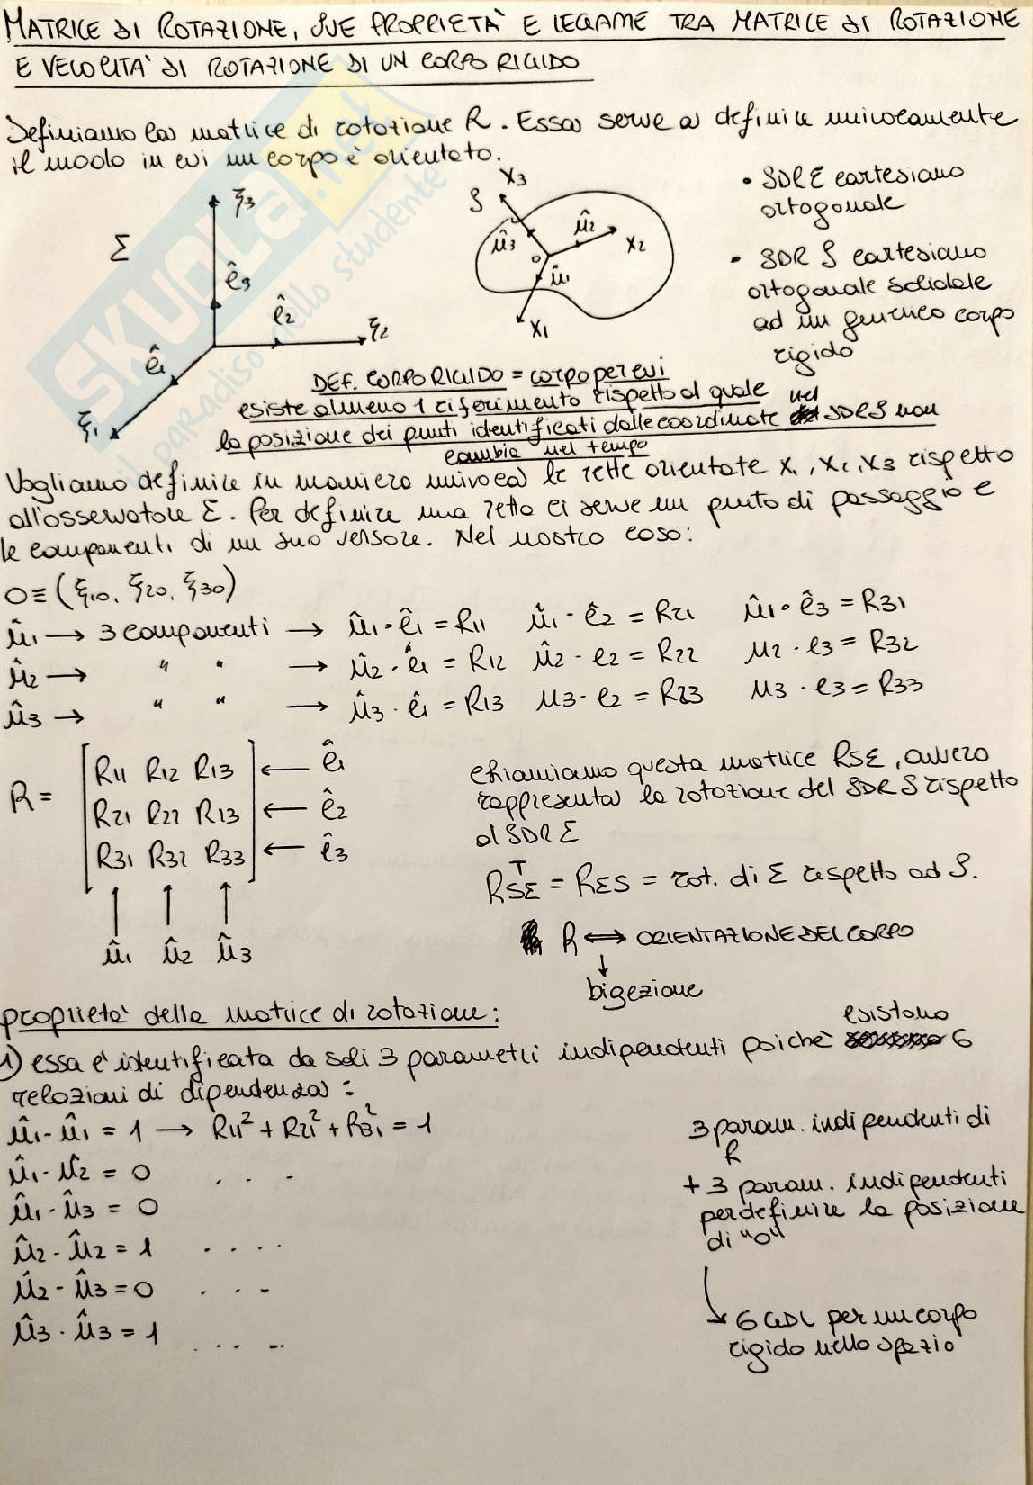 MATRICE DI ROTAZIONE, SUE PROPRIETÀ E LEGAME TRA MATRICE DI ROTAZIONE
E VELOCITÀ DI ROTAZIONE DI UN CORPO RIGIDO
Definiamo la matrice di rotazione R. Essa serve a definire univocamente
il modo in cui un corpo è orientato.
Σ
ξ3
ê3
ê2
ξ2
ê1
ξ1
S
X3
û3
û2
X2
o
û1
X1
• SDR Σ cartesiano
ortogonale
• SDR S cartesiano
ortogonale solidale
ad un generico corpo
rigido
DEF. CORPO RIGIDO = corpo per cui
esiste almeno 1 riferimento rispetto al quale
la posizione dei punti identificati dalle coordinate nel SDR S non
cambia nel tempo
Vogliamo definire in maniera univoca le rette orientate X1, X2, X3 rispetto
all'osservatore Σ. Per definire una retta ci serve un punto di passaggio e
le componenti di un suo versore. Nel nostro caso:
O≡(ξ10, ξ20, ξ30)
û1 → 3 componenti → û1·ê1 = R11 û1·ê2 = R21 û1·ê3 = R31
û2 → " " → û2·ê1 = R12 û2·e2 = R22 u2·e3 = R32
û3 → " " → û3·ê1 = R13 u3·e2 = R23 u3·e3 = R33
R = [R11 R12 R13 ← ê1
R21 R22 R13 ← ê2
R31 R32 R33] ← ê3
↑ ↑ ↑
û1 û2 û3
chiamiamo questa matrice RSΣ, ovvero
rappresenta la rotazione del SDR S rispetto
al SDR Σ
RSΣ^T = RΣS = rot. di Σ rispetto ad S.
R ⟺ ORIENTAZIONE DEL CORPO
↓
bigezione
proprietà della matrice di rotazione:
1) essa è identificata da soli 3 parametri indipendenti poichè esistono 6
relazioni di dipendenza:
û1·û1 = 1 → R11² + R21² + R31² = 1
û1·û2 = 0 . . .
û1·û3 = 0
û2·û2 = 1 . . . .
û2·û3 = 0 . . .
û3·û3 = 1 . . . .
3 param. indipendenti di
R
+ 3 param. indipendenti
per definire la posizione
di "o"
↘ 6 GDL per un corpo
rigido nello spazio
SKUOLA.net
il paradiso dello studente